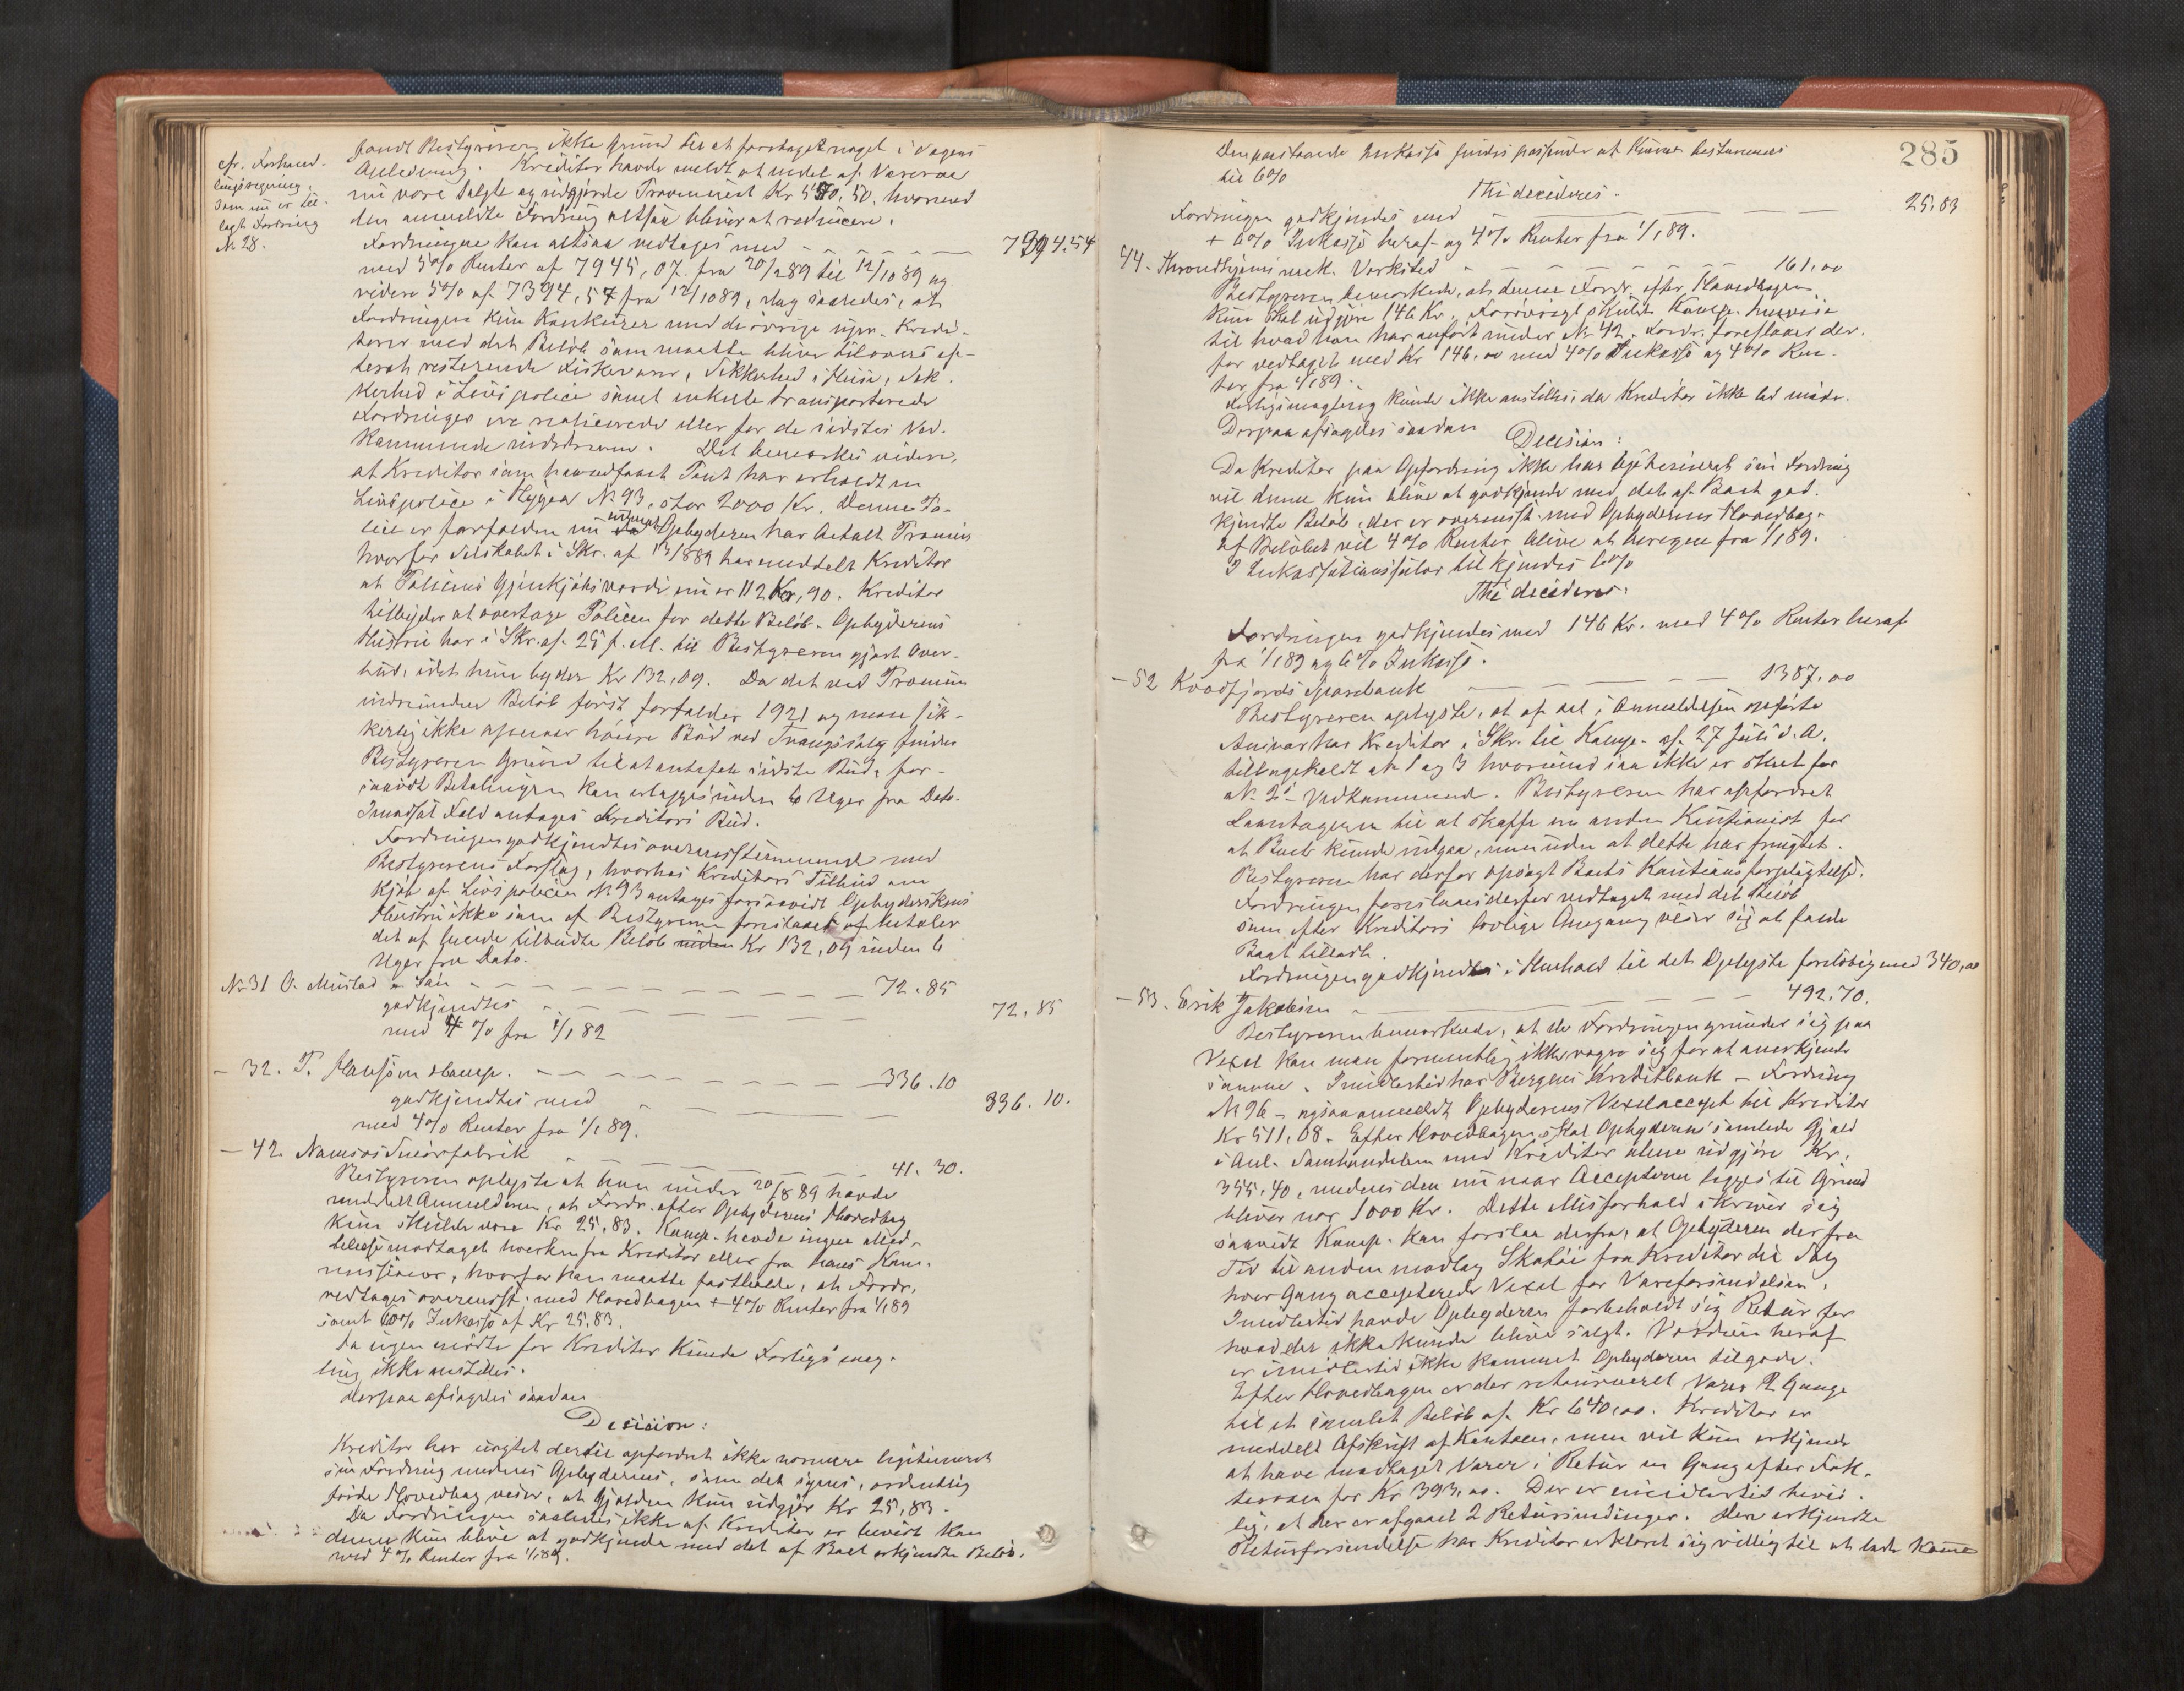 cfr. Forhand-
lingsregning,
som nu er til-
lagt Fordring
No 28.
fandt Bestyreren ikke Grund til at foretaget noget i Sagens
Anledning. Kreditor havde meldt at endel af Varerne
nu vare solgte og udgjorde Provenuet Kr 550,50, hvormed
den anmeldte Fordring altsaa bliver at reducere.
Fordringen kan altsaa vedtages med 7394,54
med 5% Renter af 7945,07 fra 20/2 89 til 12/10 89 og
videre 5% af 7394,57 fra 12/10 89, dog saaledes, at
Fordringen kun konkurrer med de övrige upr. Kredi-
torer med det Belöb som maatte bliver tilovers ef-
terat resterende Fiskevarer, Sikkerhed i Huse, Sik-
kerhed i Livspolice samt enkelte transporterede
Fordringer ere realiserede eller for de sidstes Ved-
kommende inddrevne. Det bemærkes videre,
at Kreditor som haandfaaet Pant har erholdt en
Livspolice i Hygea No 93, stor 2000 Kr. Denne Po-
lice er forfalden nu da Opbyderen har betalt Præmie
hvorfor Selskabet i Skr. af 13/8 89 har meddelt Kreditor
at Policens Gjenkjöbsværdi nu er 112 Kr, 90. Kreditor
tilbyder at overtage Policen for dette Belöb. Opbyderens
Hustru har i Skr. af 25 f. M. til Bestyreren gjort Over-
bud, idet hun byder Kr 132,09. Da det ved Præmien
indvundne Belöb först forfalder 1921 og man sik-
kerlig ikke opnaar höiere Bud ved Tvangssalg finder
Bestyreren Grund til at anbefale sidste Bud, for-
saavidt Betalingen kan erlægges inden 6 Uger fra Dato.
I modsat Fald antages Kreditors Bud.
Fordringen godkjendtes overensstemmende med
Bestyrerens Forslag, hvorhos Kreditors Tilbud om
Kjöb af Livspolicen No 93 antages forsaavidt Opbyderskens
Hustru ikke som af Bestyreren foreslaaet betaler
det af hende tilbudte Belöb inden Kr 132,09 inden 6
Uger fra Dato.
No 31 O. Mustad & Sön 72.85
godkjendtes 72,85
med 4% fra 1/1 82
- 32. P. Hansson & Comp. 336.10
godkjendtes med 336.10.
med 4% Renter fra 1/1 89.
- 42 Namsos Smörfabrik 41.30.
Bestyreren oplyste at han under 20/8 89 havde
meddelt Anmelderen, at Fordr. efter Opbyderens Hovedbog
kun skulde være Kr 25,83. Komp. havde ingen Med-
delelse modtaget hverken fra Kreditor eller fra hans Kom-
missionær, hvorfor han maatte fastholde, at Fordr.
vedtages overensst. med Hovedbogen + 4% Renter fra 1/1 89
samt 6% Inkasso af Kr 25,83.
Da ingen mödte for Kreditor kunde Forligsmæg-
ling ikke anstilles.
Derpaa afsagdes saadan
Decision:
Kreditor har uagtet dertil opfordret ikke nærmere legitimeret
sin Fordring medens Opbyderens, som det synes, ordentlig
förte Hovedbog viser, at Gjælden kun udgjör Kr 25,83.
Da Fordringen saaledes ikke af Kreditor er bevist kan
denne kun blive at godkjende med det af Boet erkjendte Belöb.
med 4% Renter fra 1/1 89.
285
Den paastaaede Inkasso findes passende at kunne bestemmes
til 6%
Thi decideres:
Fordringen godkjendes med 25.83
+ 6% Inkasso heraf og 4% Renter fra 1/1 89.
44. Throndhjems mek. Værksted 161.00
Bestyreren bemærkede, at denne Fordr. efter Hovedbogen
kun skal udgjöre 146 Kr. Forövrigt skulde Komp. henvise
til hvad han har anfört under No 42. Fordr. foreslaaes der-
for vedtaget med Kr 146,00 med 4% Inkasso og 4% Ren-
ter fra 1/1 89.
Forligsmægling kunde ikke anstilles, da Kreditor ikke lod möde.
Derpaa afsagdes saadan
Decision:
Da Kreditor paa Opfordring ikke har legitimeret sin Fordring
vil denne kun blive at godkjende med det af Boet god-
kjendte Belöb, der er overensst. med Opbyderens Hovedbog.
af Belöbet vil 4% Renter blive at beregne fra 1/1 89.
I Inkassationssalær tilkjendes 6%
Thi decideres:
Fordringen godkjendes med 146 Kr. med 4% Renter heraf
fra 1/1 89 og 6% Inkasso.
- 52 Kvædfjords Sparebank 1387.00
Bestyreren oplyste, at af de i Anmeldelsen opförte
Ansvar har Kreditor i Skr. til Komp. af 27 Juli d. A.
tilbagekaldt No 1 og 3 hvorimod saa ikke er skeet for
No. 2s Vedkommende. Bestyreren har opfordret
Laantageren til at skaffe en anden Kautionist for
at Boet kunde udgaa, men uden at dette har frugtet.
Bestyreren har derfor opsagt Boets Kautionsforpligtelse.
Fordringen foreslaaes derfor vedtaget med det Belöb
som efter Kreditors lovlige Omgang viser sig at falde
Boet tillast.
Fordringen godkjendtes i Henhold til det Oplyste forelöbig med 340,00
- 53. Erik Jakobsen 492.70.
Bestyreren bemærkede, at da Fordringen grunder sig paa
Vexel kan man formentlig ikke vægre sig for at anerkjende
samme. Imidlertid har Bergens Kreditbank - Fordring
No 96 - ogsaa anmeldt Opbyderens Vexelaccept til Kreditor
Kr 511,08. Efter Hovedbogen skal Opbyderens samlede Gjæld
i Anl. Samhandelen med Kreditor alene udgjöre Kr.
355,40, medens den nu naar Accepterne lægges til Grund
bliver vor 1000 Kr. Dette Misforhold skriver sig
saavidt Komp. kan forstaa derfra, at Opbyderen der fra
Tid til anden modtog Skotöi fra Kreditor til Salg
hver Gang accepterede Vexel for Vareforsendelsen.
Imidlertid havde Opbyderen forbeholdt sig Retur for
hvad der ikke kunde blive solgt. Værdien heraf
er imidlertid ikke kommet Opbyderen tilgode.
Efter Hovedbogen er der returneret Varer 2 Gange
til et samlet Belöb af Kr 640,00. Kreditor er
meddelt Afskrift af Kontoen, men vil kun erkjende
at have modtaget Varer i Retur en Gang efter Fak-
turaen for Kr 393,00. Der er imidlertid bevis-
lig, at der er afgaaet 2 Retursendinger. Den erkjendte
Returforsendelse har Kreditor erklæret sig villig til at lade komme